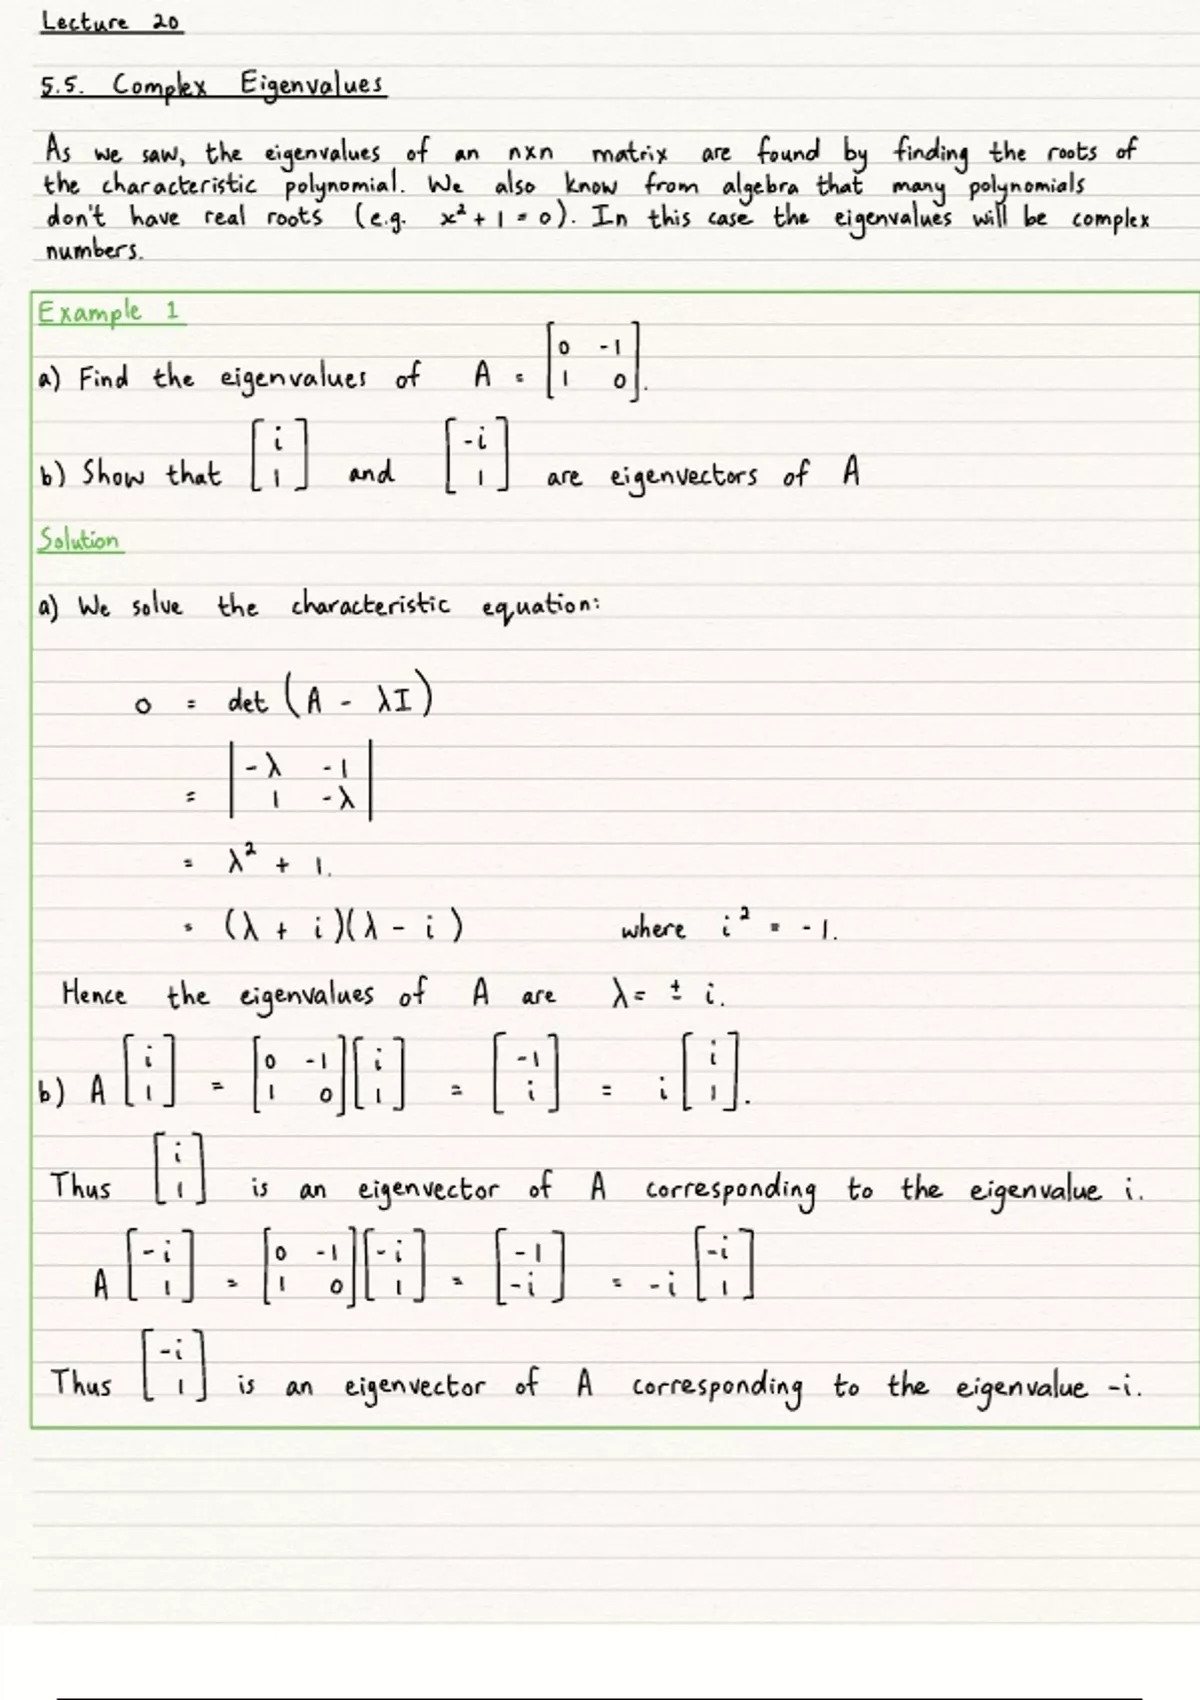 Lecture 20
5.5. Complex Eigenvalues
As we saw, the eigenvalues of an n×n matrix are found by finding the roots of
the characteristic polynomial. We also know from algebra that many polynomials
don't have real roots (e.g. x² + 1 = 0). In this case the eigenvalues will be complex
numbers.
Example 1
a) Find the eigenvalues of A = [0 -1; 1 0].
b) Show that [i; 1] and [-i; 1] are eigenvectors of A
Solution
a) We solve the characteristic equation:
0 = det (A - λI)
= |-λ -1; 1 -λ|
= λ² + 1.
= (λ + i)(λ - i) where i² = -1.
Hence the eigenvalues of A are λ = ± i.
b) A [i; 1] = [0 -1; 1 0][i; 1] = [-1; i] = i [i; 1].
Thus [i; 1] is an eigenvector of A corresponding to the eigenvalue i.
A [-i; 1] = [0 -1; 1 0][-i; 1] = [-1; -i] = -i [-i; 1]
Thus [-i; 1] is an eigenvector of A corresponding to the eigenvalue -i.